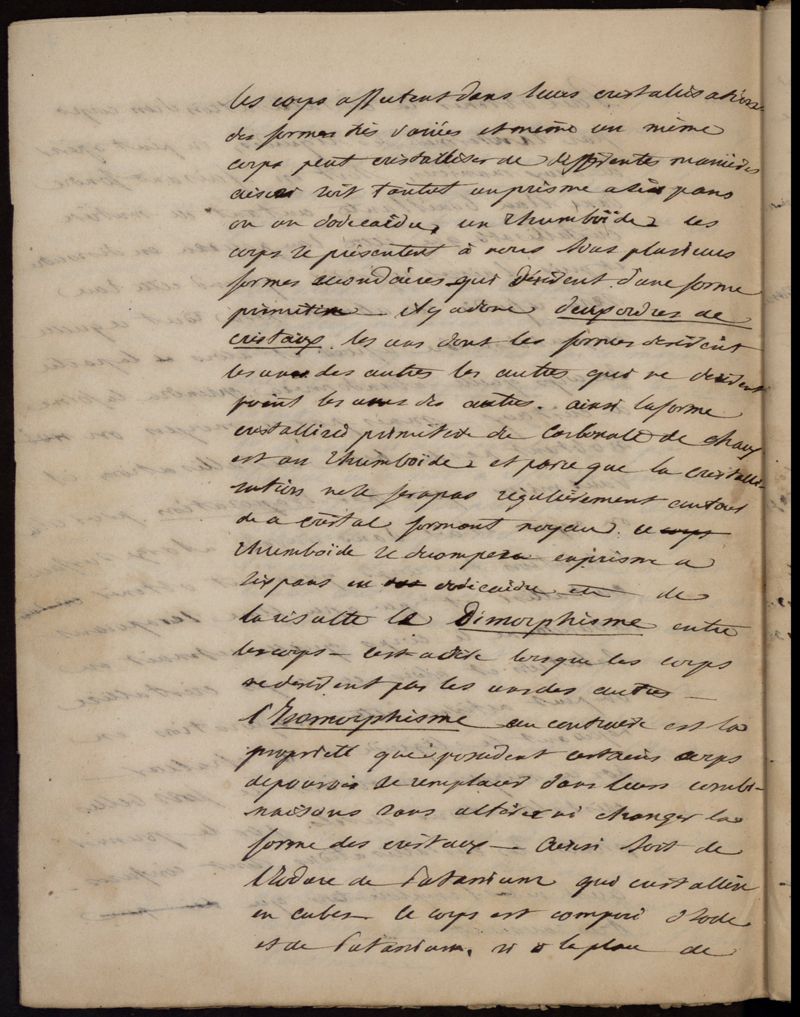 les corps affectent dans leurs cristallisations
des formes très variées et même un même
corps peut cristalliser de differentes manières
ainsi soit tantot un prisme a six pans
ou un dodecaèdre, un rhumboïde. les
corps se présentent à nous sous plusieurs
formes secondaires qui dérident d'une forme
primitive — il y a donc deux ordres de
cristaux. les uns dont les formes derident
les unes des autres les autres qui ne derident
point les unes des autres. ainsi la forme
cristallisée primitive du Carbonate de chaux
est un rhumboïde, et parce que la cristalli-
sation ne se fera pas régulièrement autour
de ce cristal formant noyau. ce corps
rhumboïde se decompera en prisme a
six pans en dodicaèdre etc de
la résulte le Dimorphisme entre
les corps — c'est a dire lorsque les corps
ne derident pas les uns des autres —
l'Isomorphisme au contraire est la
propriété que possedent certains corps
de pouvoir se remplacer dans leurs combi-
naisons sans altérer ni changer la
forme des cristaux — Ainsi soit de
l'Iodure de Potassium qui cristallise
en cubes — le corps est composé d'Iode
et de Potassium. si a la place de